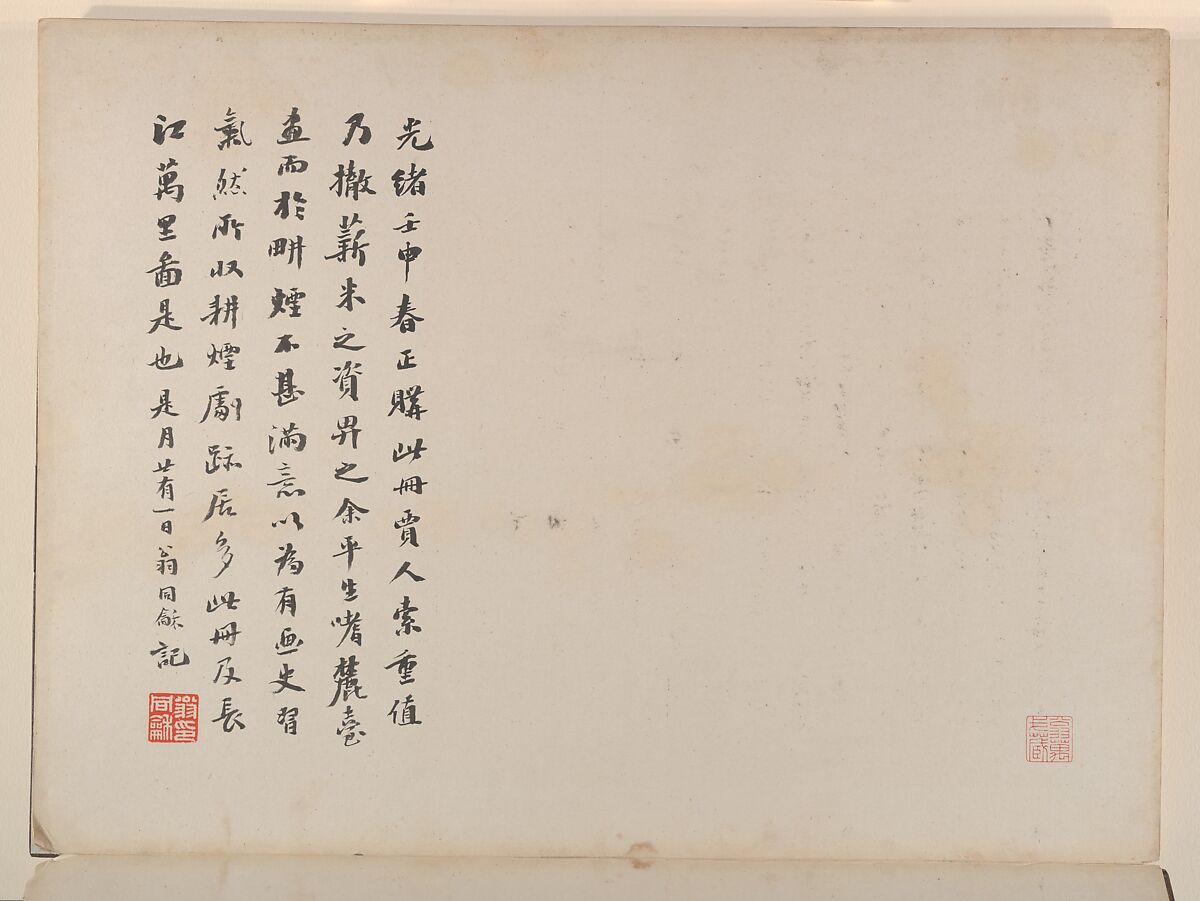 光緒壬申春正購此冊賈人索重值
乃撤薪米之資畀之余平生嗜麓臺
畫而於畊煙不甚滿意以為有畫史習
氣然所收耕煙劇跡居多此冊及長
江萬里啚是也是月廿有一日翁同龢記
翁同龢印
翁萬戈藏